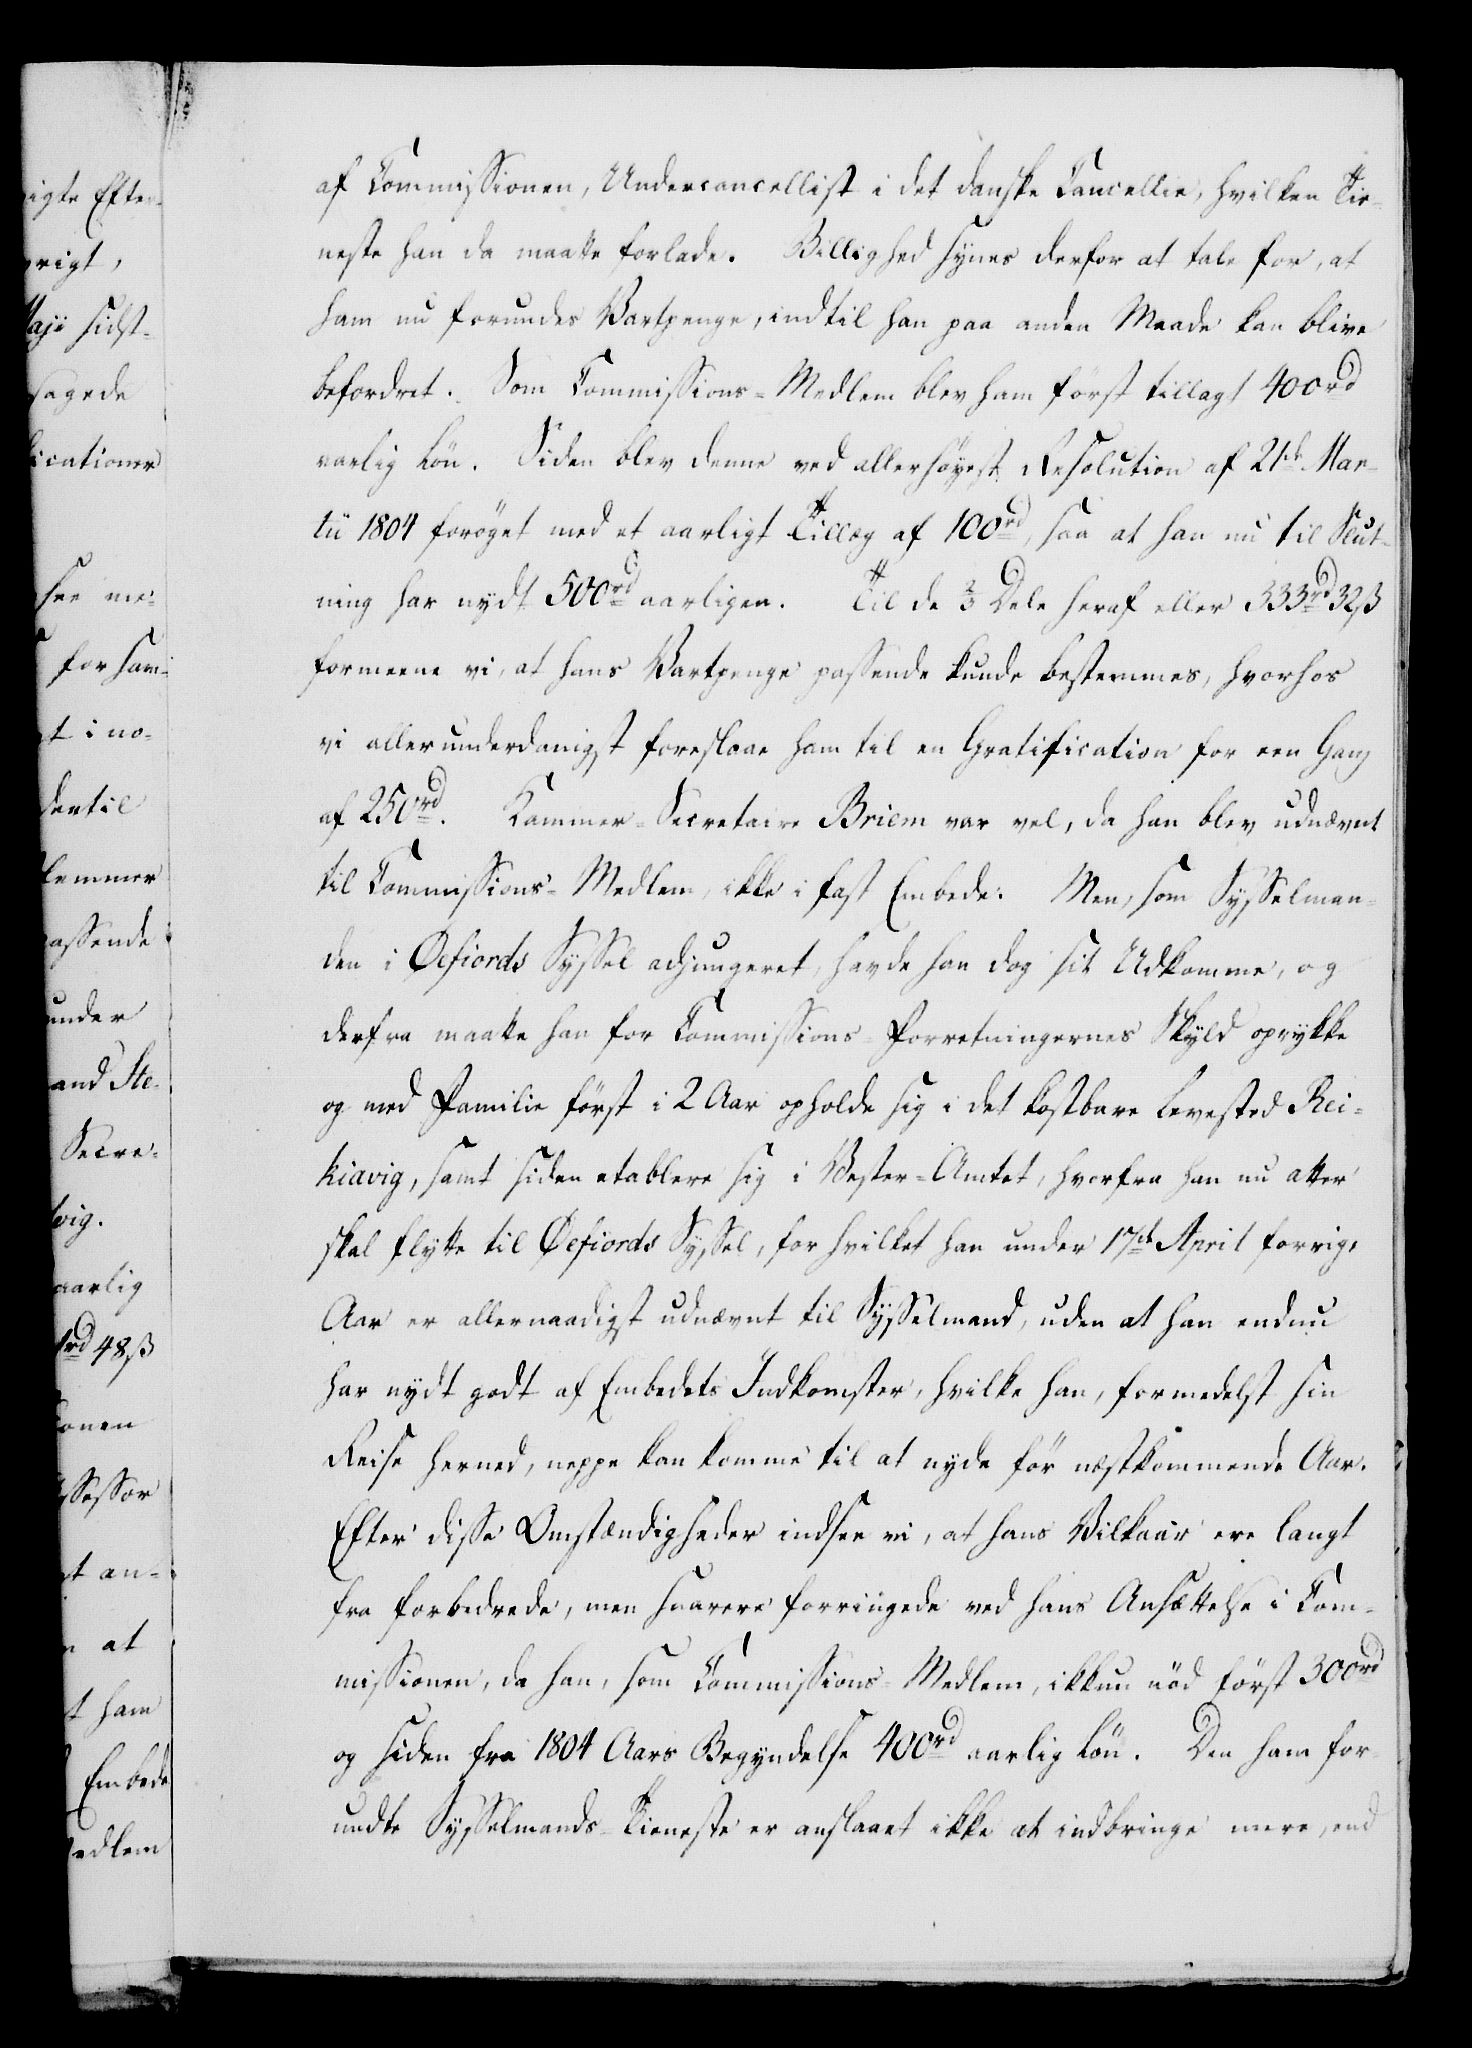 igte Efter-
rigt,
Maji sidst-
sagede
licationer
see me-
forsam-
t i no-
dertil
lemmer
assende
under
and Ste-
Secre-
vig.
aarlig
rd 48 ß
onen
ssessor
t an-
n at
t ham
Embede
edlem
af Commissionen, Undercancellist i det danske Cancellie, hvilken Tie-
neste han da maatte forlade. Billighed synes derfor at tale for, at
ham nu forundes Vartpenge, indtil han paa anden Maade kan blive
befordret. Som Commissions-Medlem blev ham först tillagt 400rd
aarlig Lön. Siden blev denne ved allerhöyest Resolution af 21de Mar-
tii 1804 foröget med et aarligt Tillæg af 100rd, saa at han nu til Slut-
ning har nydt 500rd aarligen. Til de 2/3 Dele heraf eller 333rd 32ß
formeene vi, at hans Vartpenge passende kunde bestemmes, hvorhos
vi allerunderdanigst foreslaae ham til en Gratification for een Gang
af 250rd. Kammer-Secretaire Briem var vel, da han blev udnævnt
til Commissions-Medlem, ikke i fast Embede. Men, som Sysselman-
den i Øefiords Syssel adjungeret, havde han dog sit Udkomme, og
derfra maatte han for Commissions-Forretningernes Skyld oprykke
og med Familie först i 2 Aar opholde sig i det kostbare Levested Rei-
kiavig, samt siden etablere sig i Vester-Amtet, hvorfra han nu atter
skal flytte til Øefiords Syssel, for hvilket han under 17de April forrige
Aar er allernaadigst udnævnt til Sysselmand, uden at han endnu
har nydt godt af Embedets Indkomster, hvilke han, formedelst sin
Reise herned, neppe kan komme til at nyde för næstkommende Aar.
Efter disse Omstændigheder indsee vi, at hans Vilkaar ere langt
fra forbedrede, men snarere forringede ved hans Ansættelse i Com-
missionen, da han, som Commissions-Medlem, ikkun nöd först 300rd
og siden fra 1804 Aars Begyndelse 400rd aarlig Lön. Den ham for-
undte Sysselmands-Tieneste er anslaaet ikke at indbringe mere, end